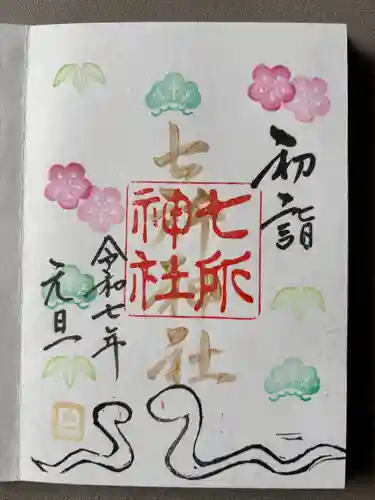 初詣
七所神社
七所
神社
令和七年
元旦